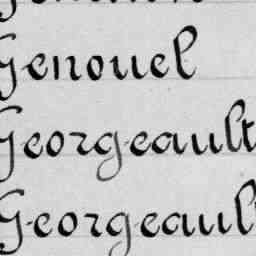 Genouel
Georgeault
Georgeault